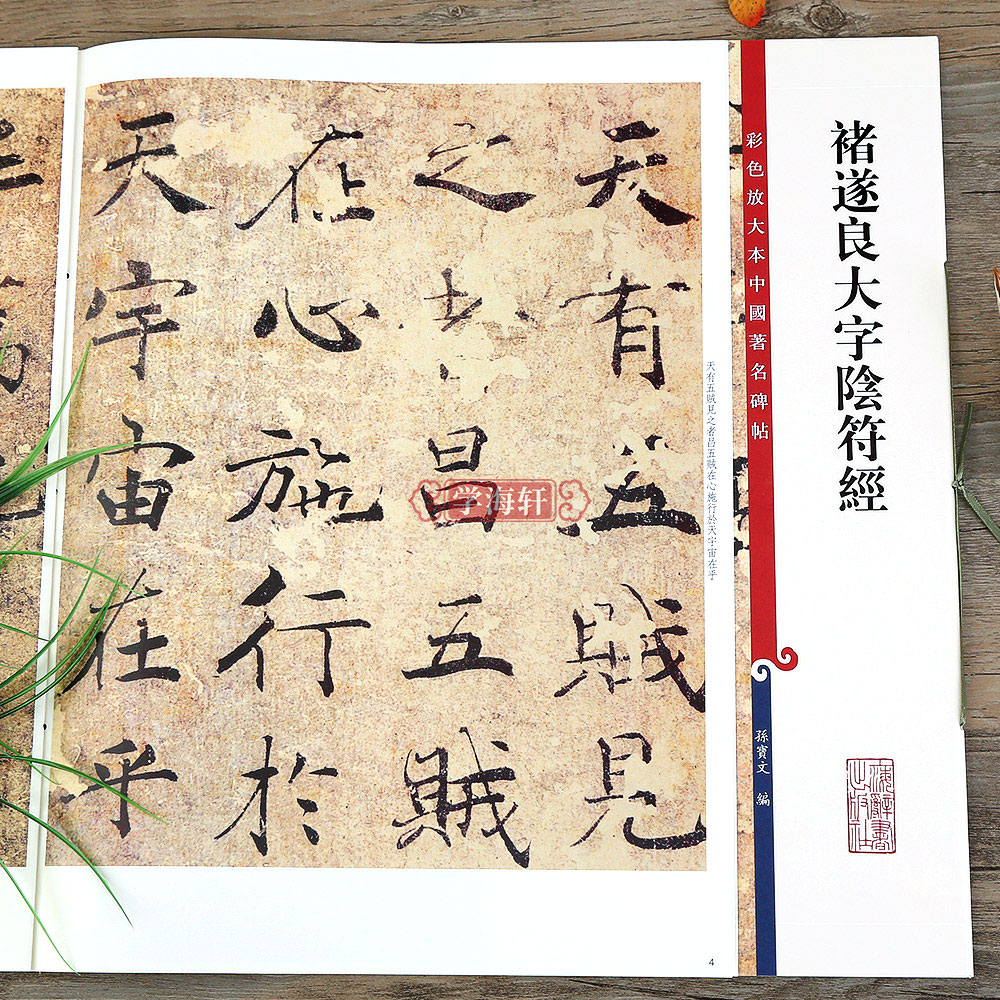 褚遂良大字陰符經
上海辭書
出版社
彩色放大本中國著名碑帖
孫寶文 編
天有五賊見之者昌五賊在心施行於天宇宙在乎
天有五賊見
之者昌五賊
在心施行於
天宇宙在乎
学海轩
4